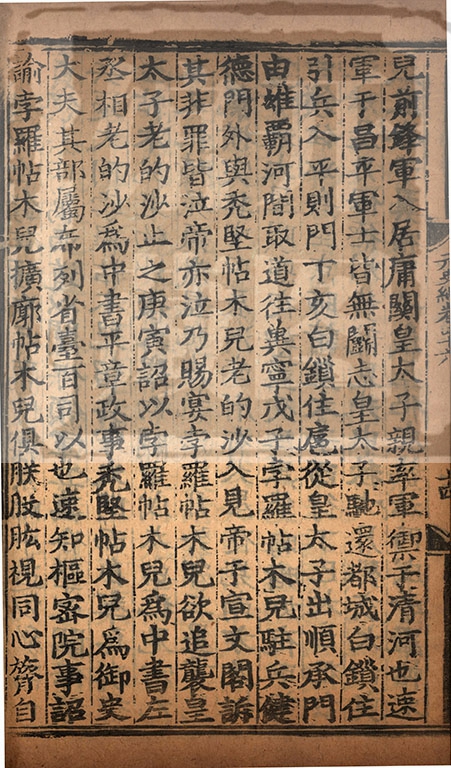 十四
兒前鋒軍入居庸關皇太子親率軍禦于清河也速
軍于昌平軍士皆無鬭志皇太子馳還都城白鎖住
引兵入平則門丁亥白鎖住扈從皇太子出順承門
由雄覇河間取道往冀寧戊子孛羅帖木兒駐兵健
德門外與禿堅帖木兒老的沙入見帝于宣文閣訴
其非罪皆泣帝亦泣乃賜宴孛羅帖木兒欲追襲皇
太子老的沙止之庚寅詔以孛羅帖木兒爲中書左
丞相老的沙爲中書平章政事禿堅帖木兒爲御史
大夫其部屬布列省臺百司以也速知樞密院事詔
諭孛羅帖木兒擴廓帖木兒俱朕股肱視同心膂自